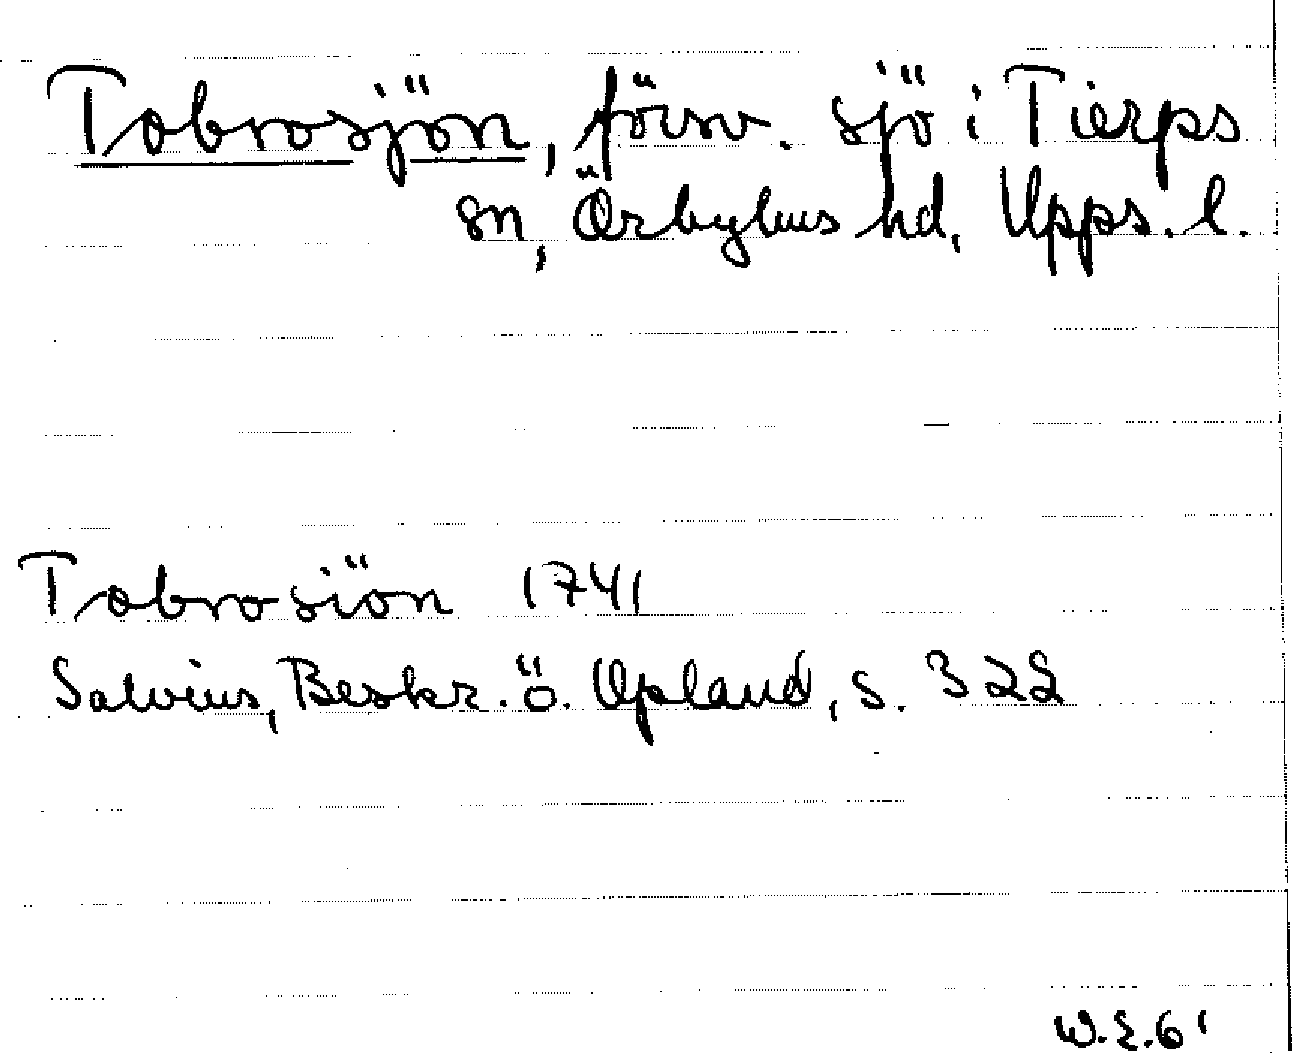 Tobrosjön, försv. sjö i Tierps
sn, Örbyhus hd, Upps. l.
Tobrosiön 1741
Salvius, Beskr. ö. Upland, s. 322
W.E.61